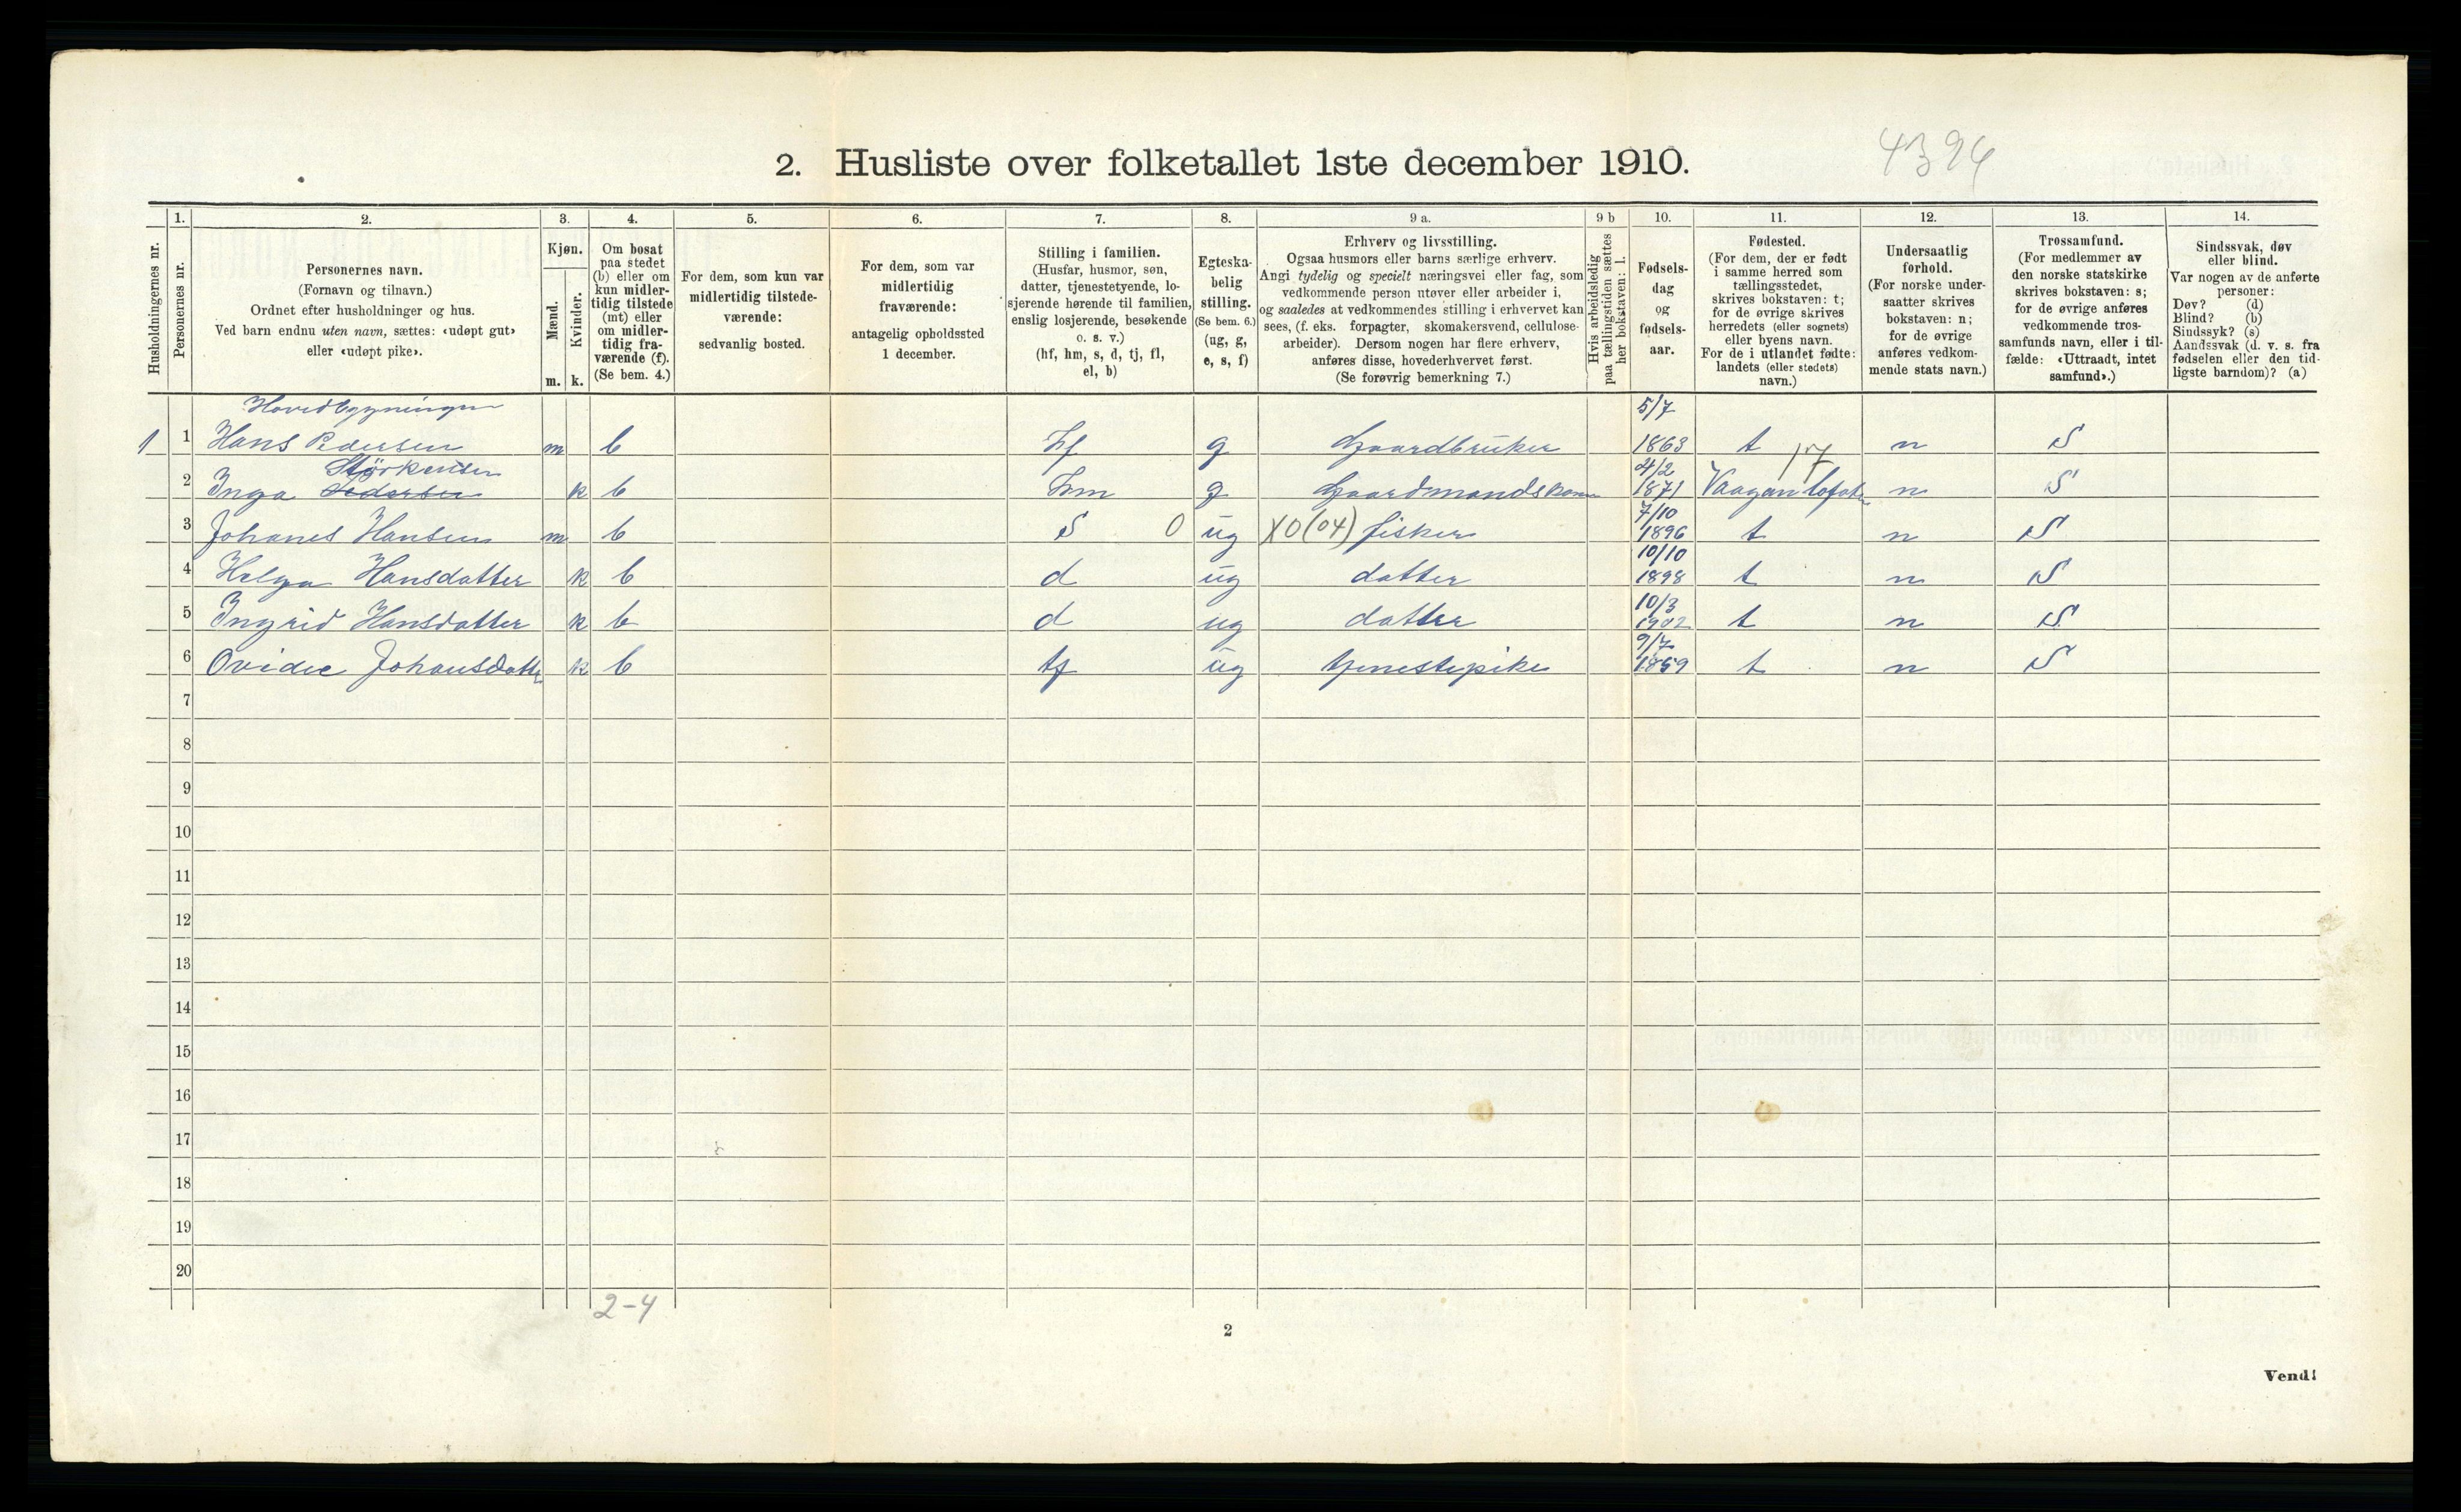 4394
2. Husliste over folketallet 1ste december 1910.
Husholdningernes nr.
1.
Personernes nr.
2.
Personernes navn.
(Fornavn og tilnavn.)
Ordnet efter husholdninger og hus.
Ved barn endnu uten navn, sættes: «udøpt gut»
eller «udøpt pike».
3.
Kjøn.
Mænd.
Kvinder.
m. k.
4.
Om bosat
paa stedet
(b) eller om
kun midler-
tidig tilstede
(mt) eller
om midler-
tidig fra-
værende (f).
(Se bem. 4.)
5.
For dem, som kun var
midlertidig tilstede-
værende:
sedvanlig bosted.
6.
For dem, som var
midlertidig
fraværende:
antagelig opholdssted
1 december.
7.
Stilling i familien.
(Husfar, husmor, søn,
datter, tjenestetyende, lo-
sjerende hørende til familien,
enslig losjerende, besøkende
o. s. v.)
(hf, hm, s, d, tj, fl,
el, b)
8.
Egteska-
belig
stilling.
(Se bem. 6.)
(ug, g,
e, s, f)
9 a.
Erhverv og livsstilling.
Ogsaa husmors eller barns særlige erhverv.
Angi tydelig og specielt næringsvei eller fag, som
vedkommende person utøver eller arbeider i,
og saaledes at vedkommendes stilling i erhvervet kan
sees, (f. eks. forpagter, skomakersvend, cellulose-
arbeider). Dersom nogen har flere erhverv,
anføres disse, hovederhvervet først.
(Se forøvrig bemerkning 7.)
9 b
Hvis arbeidsledig
paa tællingstiden sættes
her bokstaven: l.
10.
Fødsels-
dag
og
fødsels-
aar.
11.
Fødested.
(For dem, der er født
i samme herred som
tællingsstedet,
skrives bokstaven: t;
for de øvrige skrives
herredets (eller sognets)
eller byens navn.
For de i utlandet fødte:
landets (eller stedets)
navn.)
12.
Undersaatlig
forhold.
(For norske under-
saatter skrives
bokstaven: n;
for de øvrige
anføres vedkom-
mende stats navn.)
13.
Trossamfund.
(For medlemmer av
den norske statskirke
skrives bokstaven: s;
for de øvrige anføres
vedkommende tros-
samfunds navn, eller i til-
fælde: «Uttraadt, intet
samfund».)
14.
Sindssvak, døv
eller blind.
Var nogen av de anførte
personer:
Døv? (d)
Blind? (b)
Sindssyk? (s)
Aandssvak (d. v. s. fra
fødselen eller den tid-
ligste barndom)? (a)
Hovedbygningen
5/7
1 1 Hans Pedersen m b hf g Gaardbruker 1863 t n S
Störkersen
17
4/2
2 Inga Pedersen k b hm g Gaardmandskone 1871 Vaagan Lofoten n S
7/10
3 Johanes Hansen m b S 0 ug XO(04) fisker 1896 t n S
10/10
4 Helga Hansdatter k b d ug datter 1898 t n S
10/3
5 Ingrid Hansdatter k b d ug datter 1902 t n S
9/7
6 Ovidie Johansdatter k b tj ug tjenestepike 1859 t n S
7
8
9
10
11
12
13
14
15
16
17
18
19
20
2-4
2
Vend!